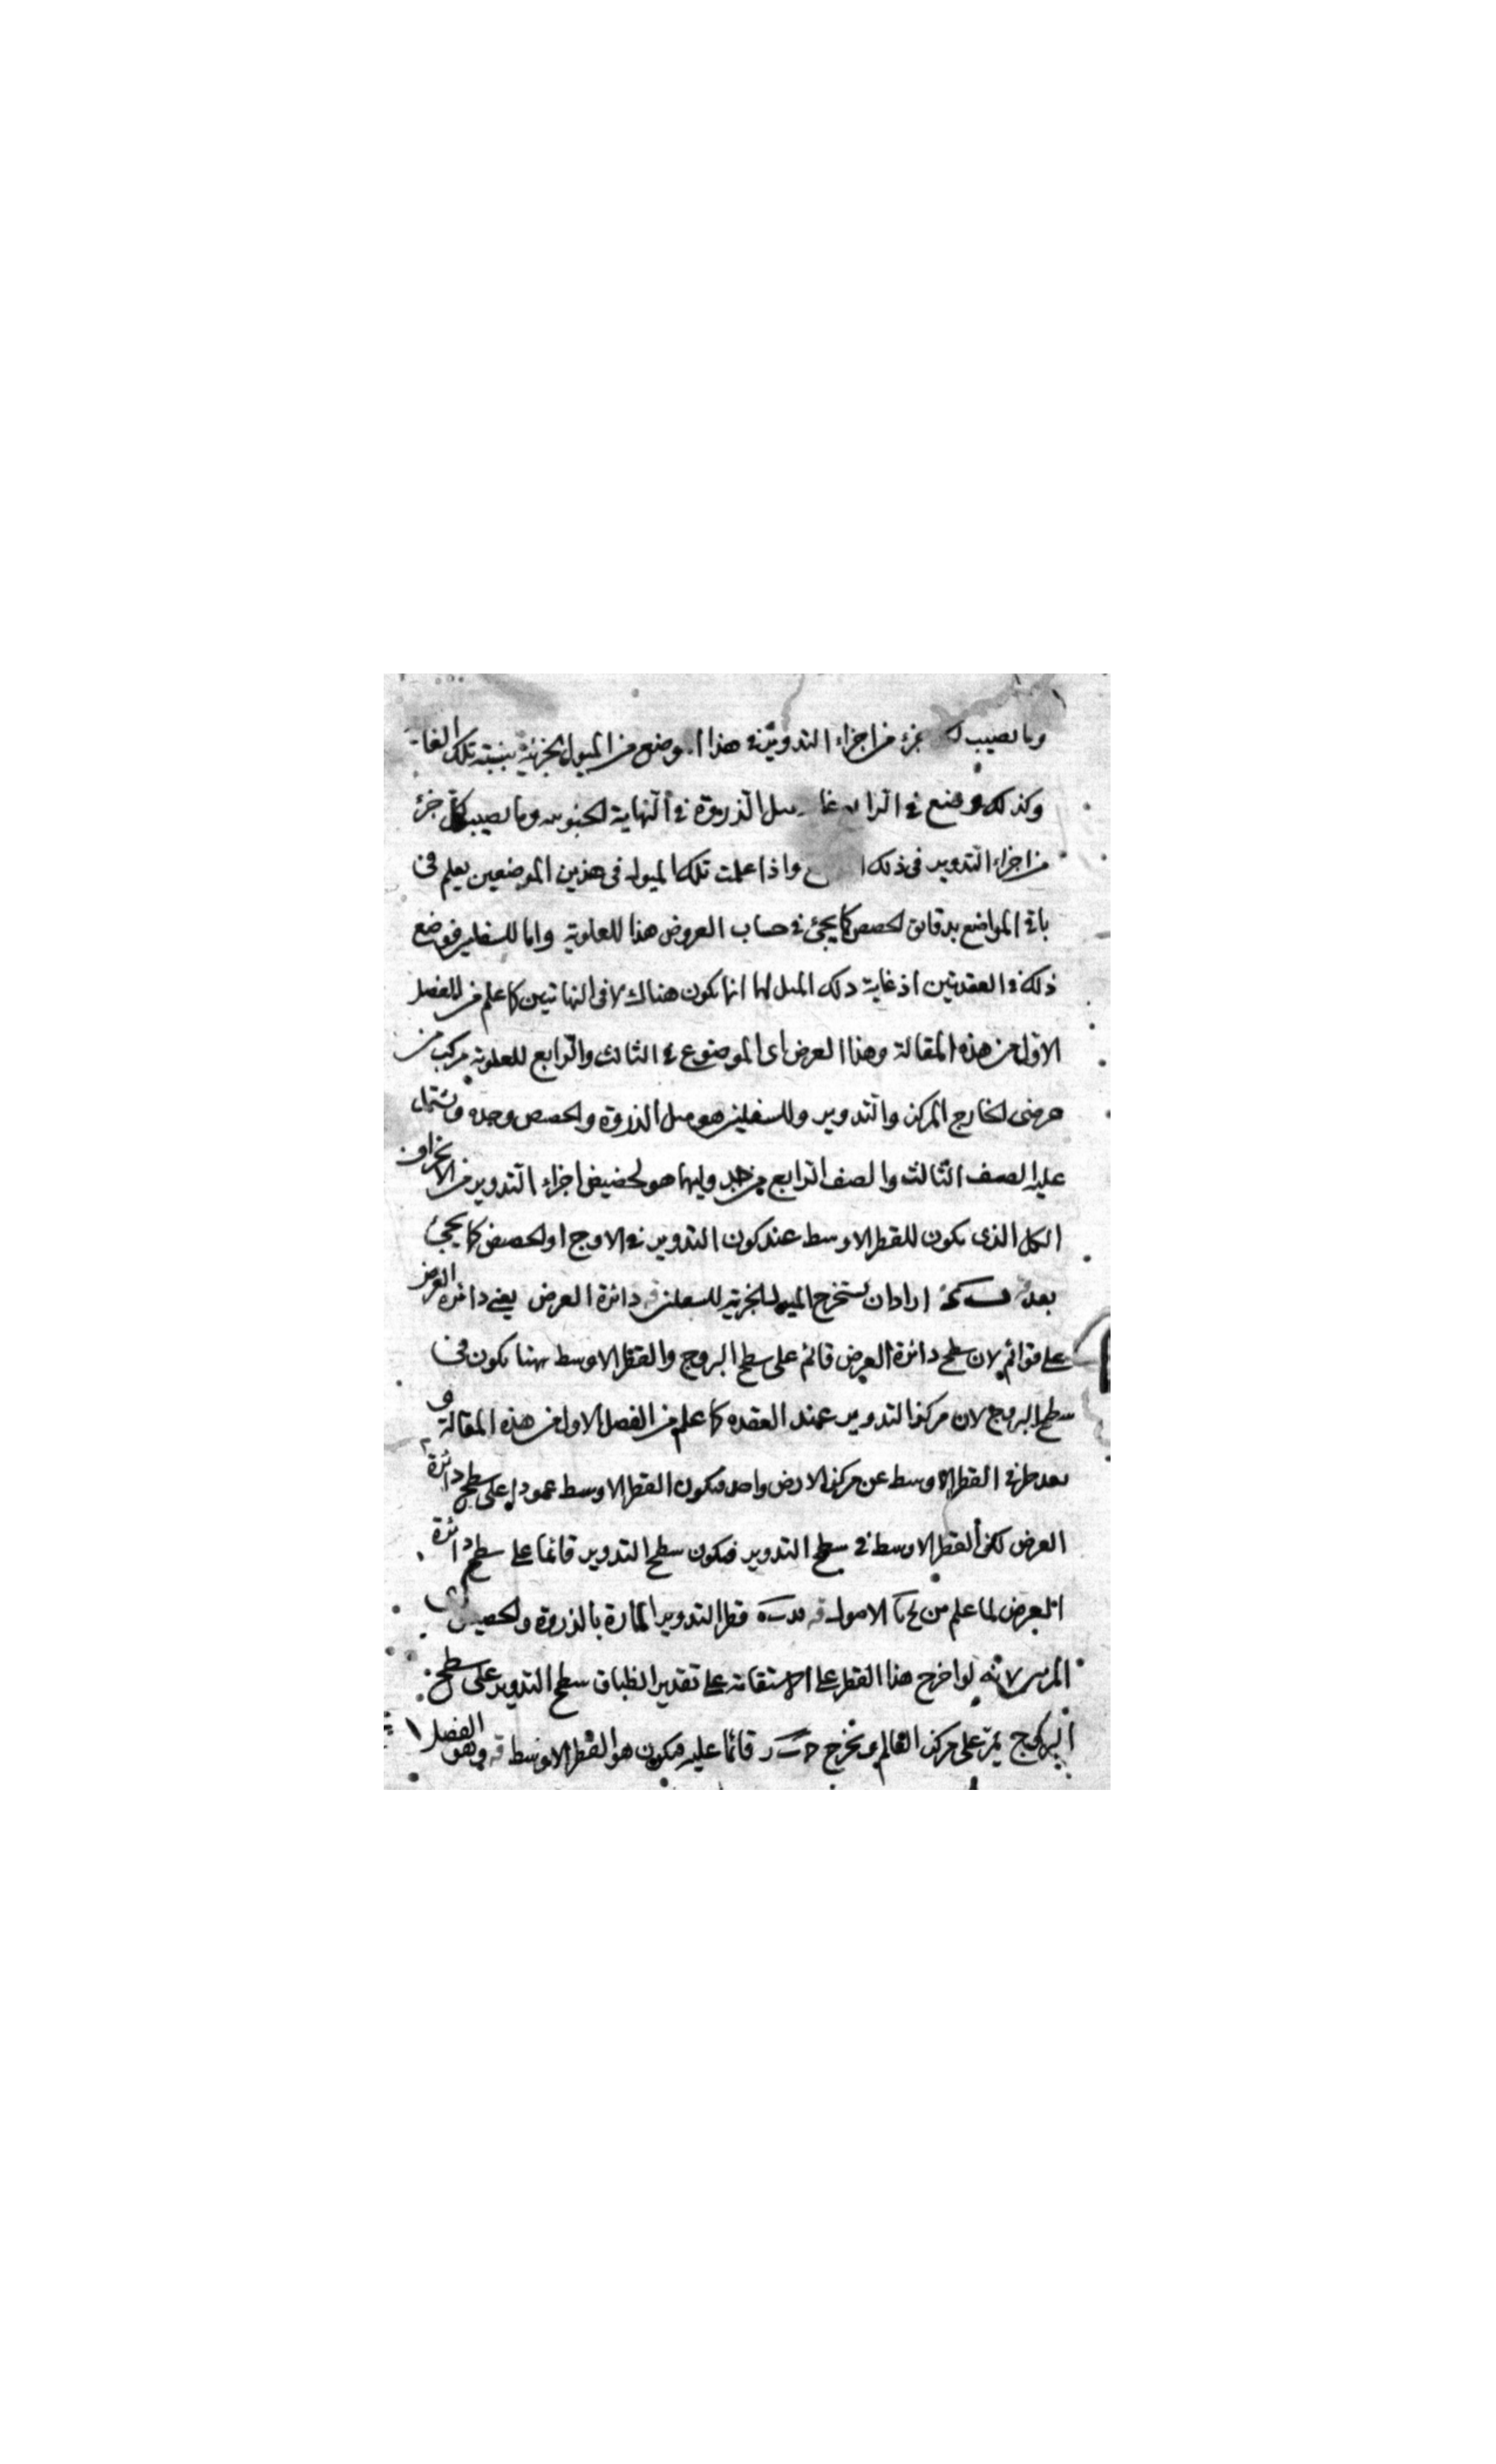 وما يصيب لكل جزء من اجزاء التدوير في هذا الموضع من الميول الجزئية بنسبة تلك الغا
وكذلك وضع في الرابع ميل الذروة في النهاية الجنوبية وما يصيب لكل جزء
من اجزاء التدوير في ذلك واذا علمت تلك الميول في هذين الموضعين يعلم في
باقي المواضع بدقائق الحصص كما يجئ في حساب العروض هذا للعلوية واما للسفليين فوضع
ذلك في العقدتين اذ غاية ذلك الميل لها انما يكون هناك لا في النهايتين كما علم من الفصل
الاول من هذه المقالة وهذا العرض اى الموضوع في الثالث والرابع للعلوية مركب من
عرضى الخارج المركز والتدوير وللسفليين هو ميل الذروة والحضيض وحده ويشتمل
عليه الصف الثالث والصف الرابع من جدوليهما هو لحضيض اجزاء التدوير من الانحراف
الكل الذى يكون للقطر الاوسط عند كون التدوير في الاوج او الحضيض كما يجئ
بعد اراد ان يستخرج الميول الجزئية للسفليين قه دائرة العرض يعنى دائرة العرض
على قوائم لان سطح دائرة العرض قائم على سطح البروج والقطر الاوسط ههنا يكون في
سطح البروج لان مركز التدوير عند العقدة كما علم من الفصل الاول من هذه المقالة و
بعد طرفى القطر الاوسط عن مركز الارض واحد فيكون القطر الاوسط عمودا على سطح دائرة
العرض لكن القطر الاوسط في سطح التدوير فيكون سطح التدوير قائما على سطح دائرة
العرض لما علم من الاصول قه قطر التدوير المارة بالذروة والحضيض
المرئى لانه لو اخرج هذا القطر على الاستقامة على تقدير انطباق سطح التدوير على سطح
البروج يمر على مركز العالم ونخرج قائما عليه فيكون هو القطر الاوسط قه وهو الفصل ا